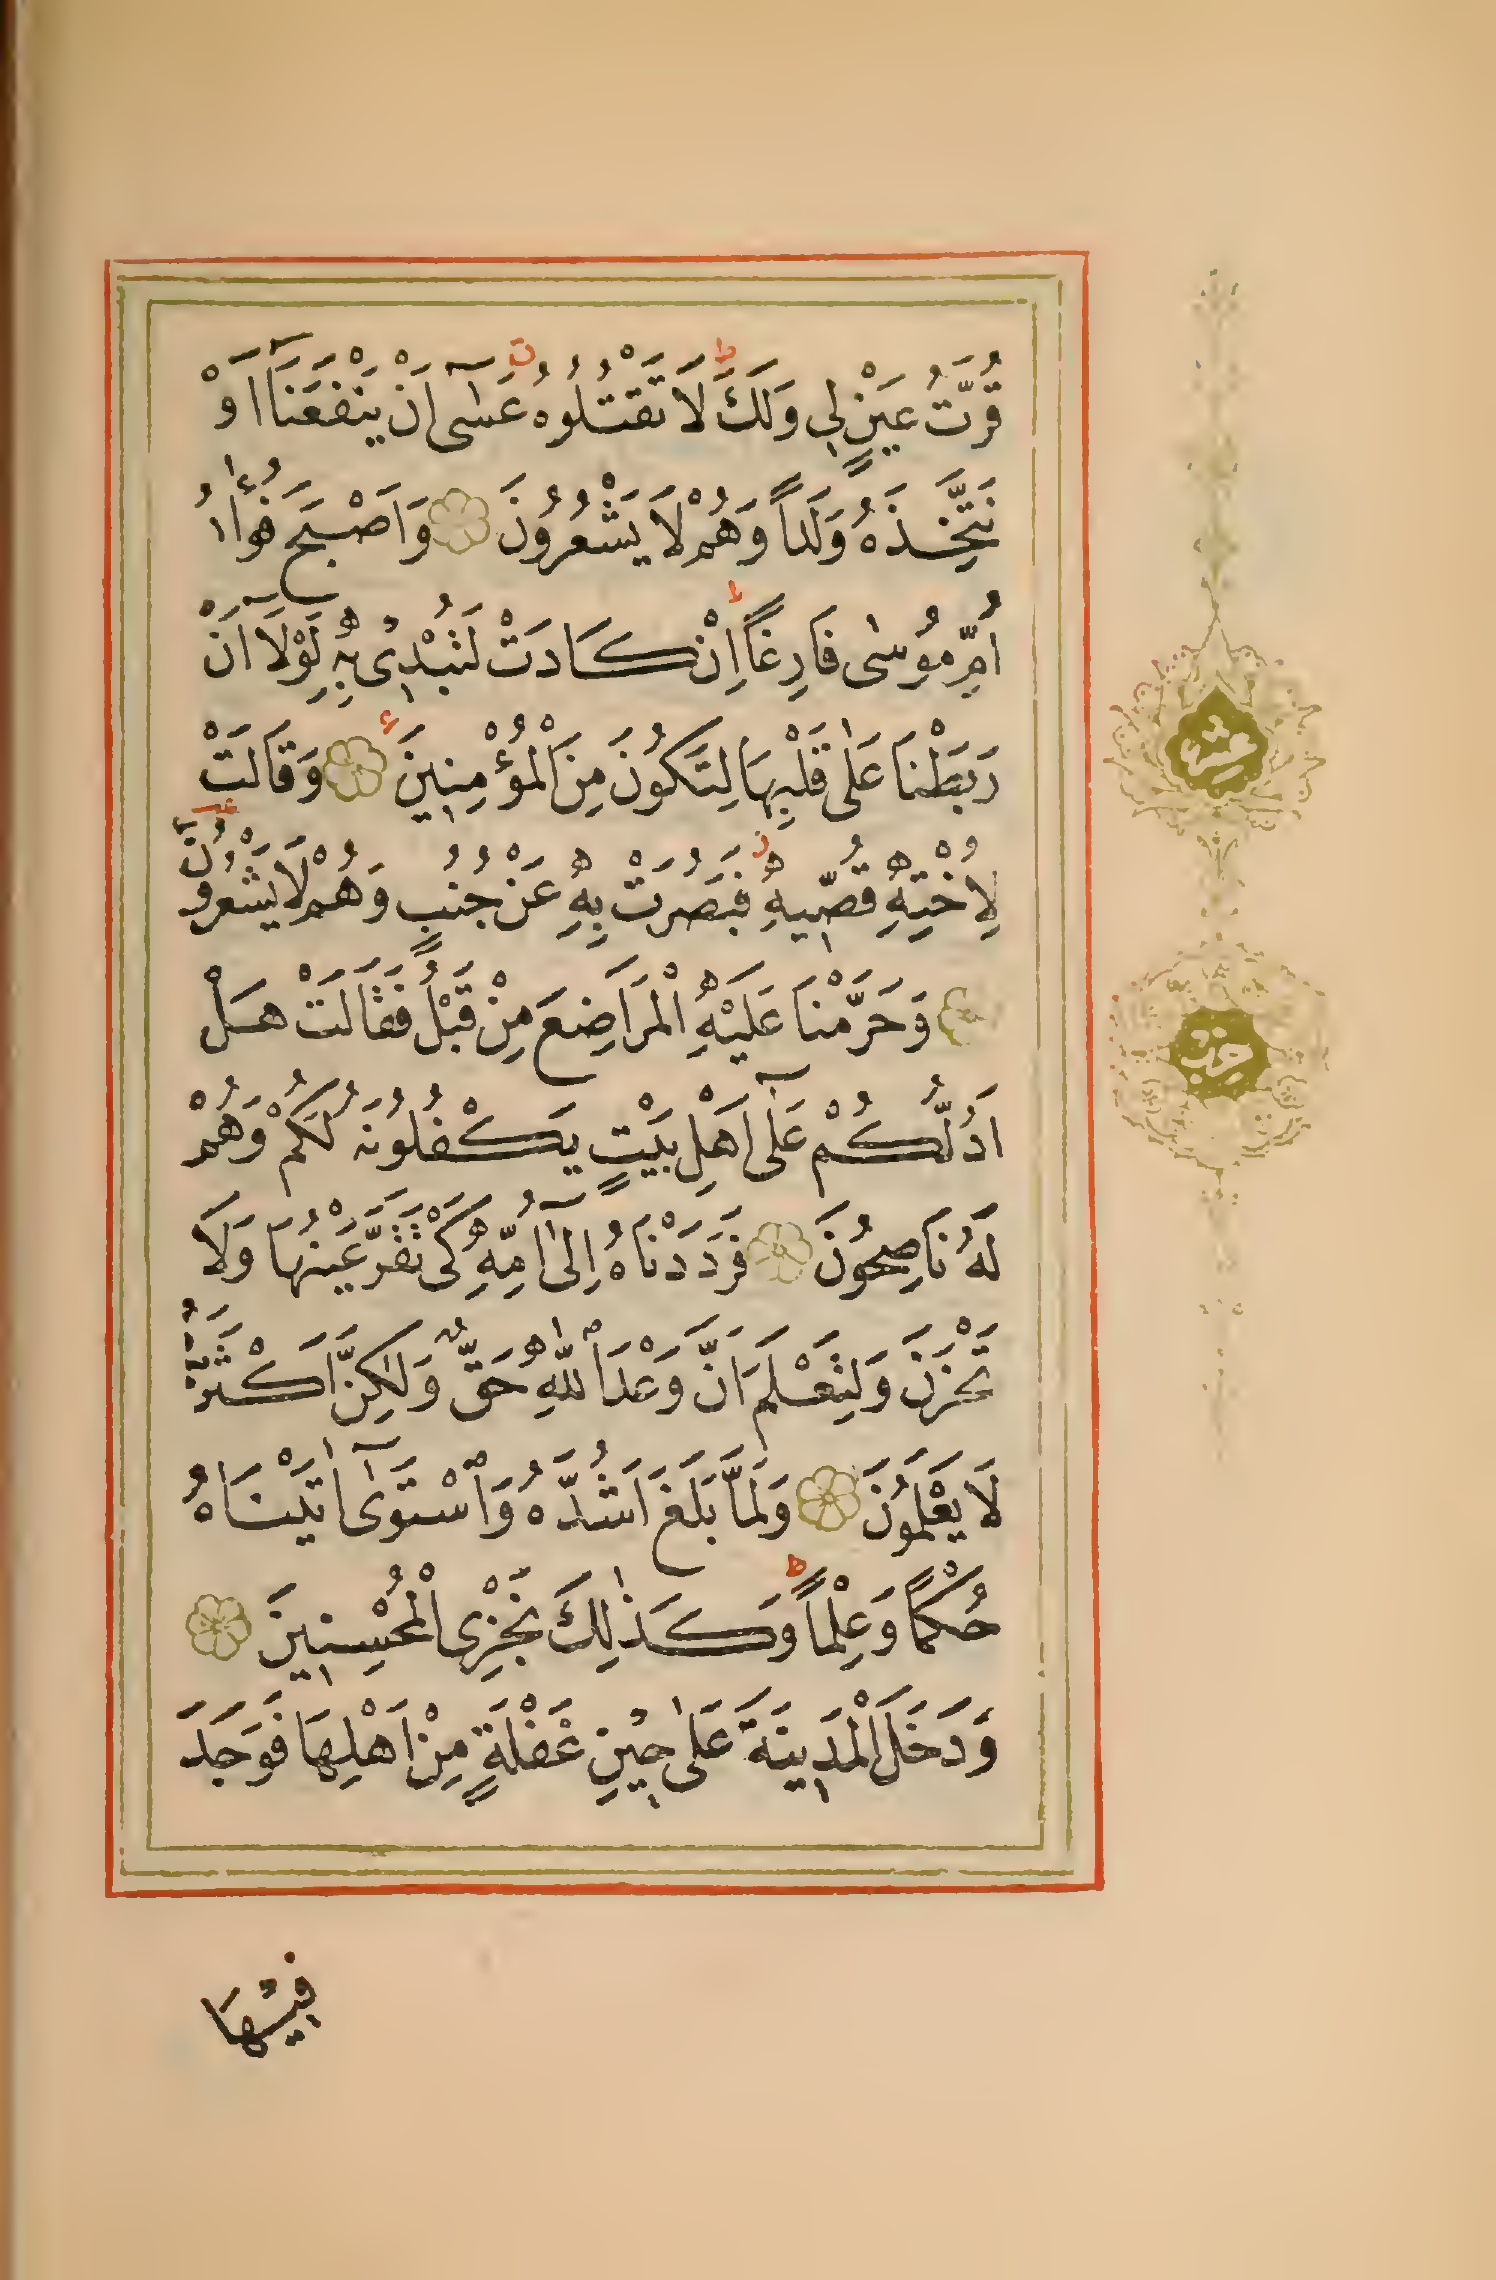 قُرَّتُ عَيْنٍ لِي وَلَكَ ط لَا تَقْتُلُوهُ ق عَسٰٓى اَنْ يَنْفَعَنَٓا اَوْ
نَتَّخِذَهُ وَلَداً وَهُمْ لَا يَشْعُرُونَ وَاَصْبَحَ فُؤٰادُ
اُمِّ مُوسٰى فَارِغاً ط اِنْ كَادَتْ لَتُبْدِي بِهِ لَوْلَٓا اَنْ
رَبَطْنَا عَلٰى قَلْبِهَا لِتَكُونَ مِنَ الْمُؤْمِنِينَ وَقَالَتْ
لِاُخْتِهِ قُصِّيهِ ز فَبَصُرَتْ بِهِ عَنْ جُنُبٍ وَهُمْ لَا يَشْعُرُونَ
وَحَرَّمْنَا عَلَيْهِ الْمَرَاضِعَ مِنْ قَبْلُ فَقَالَتْ هَلْ
اَدُلُّكُمْ عَلٰٓى اَهْلِ بَيْتٍ يَكْفُلُونَهُ لَكُمْ وَهُمْ
لَهُ نَاصِحُونَ فَرَدَدْنَاهُ اِلٰٓى اُمِّهِ كَىْ تَقَرَّ عَيْنُهَا وَلَا
تَحْزَنَ وَلِتَعْلَمَ اَنَّ وَعْدَ اللّٰهِ حَقٌّ وَلٰكِنَّ اَكْثَرَهُمْ
لَا يَعْلَمُونَ وَلَمَّا بَلَغَ اَشُدَّهُ وَاسْتَوٰٓى اٰتَيْنَاهُ
حُكْماً وَعِلْماً ط وَكَذٰلِكَ نَجْزِى الْمُحْسِنِينَ
وَدَخَلَ الْمَدِينَةَ عَلٰى حِينِ غَفْلَةٍ مِنْ اَهْلِهَا فَوَجَدَ
فِيْهَا